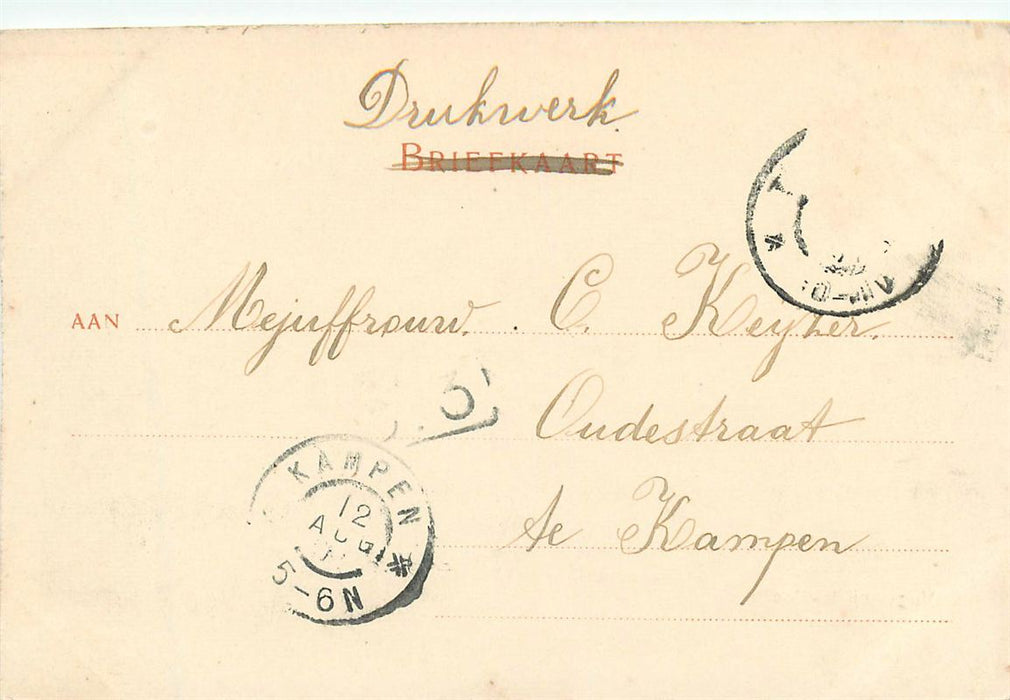 Drukwerk
BRIEFKAART
AAN Mejuffrouw. C. Keyzer.
Oudestraat
te Kampen
KAMPEN
12
AUG
5-6N